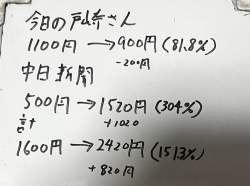 今日の戸崎さん
1100円→900円(81.8%)
-200円
中日新聞
500円→1520円(304%)
+1020
1600円→2420円(151.3%)
+820円